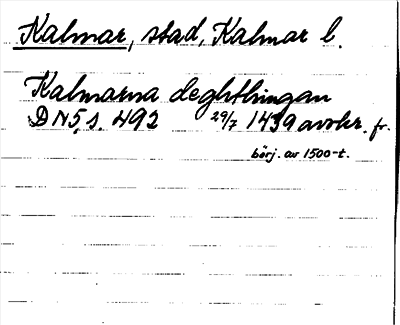 Kalmar, stad, Kalmar l.
Kalmarna deghthingan
DN5, s. 492 29/7 1439 avskr. fr.
börj. av 1500-t.